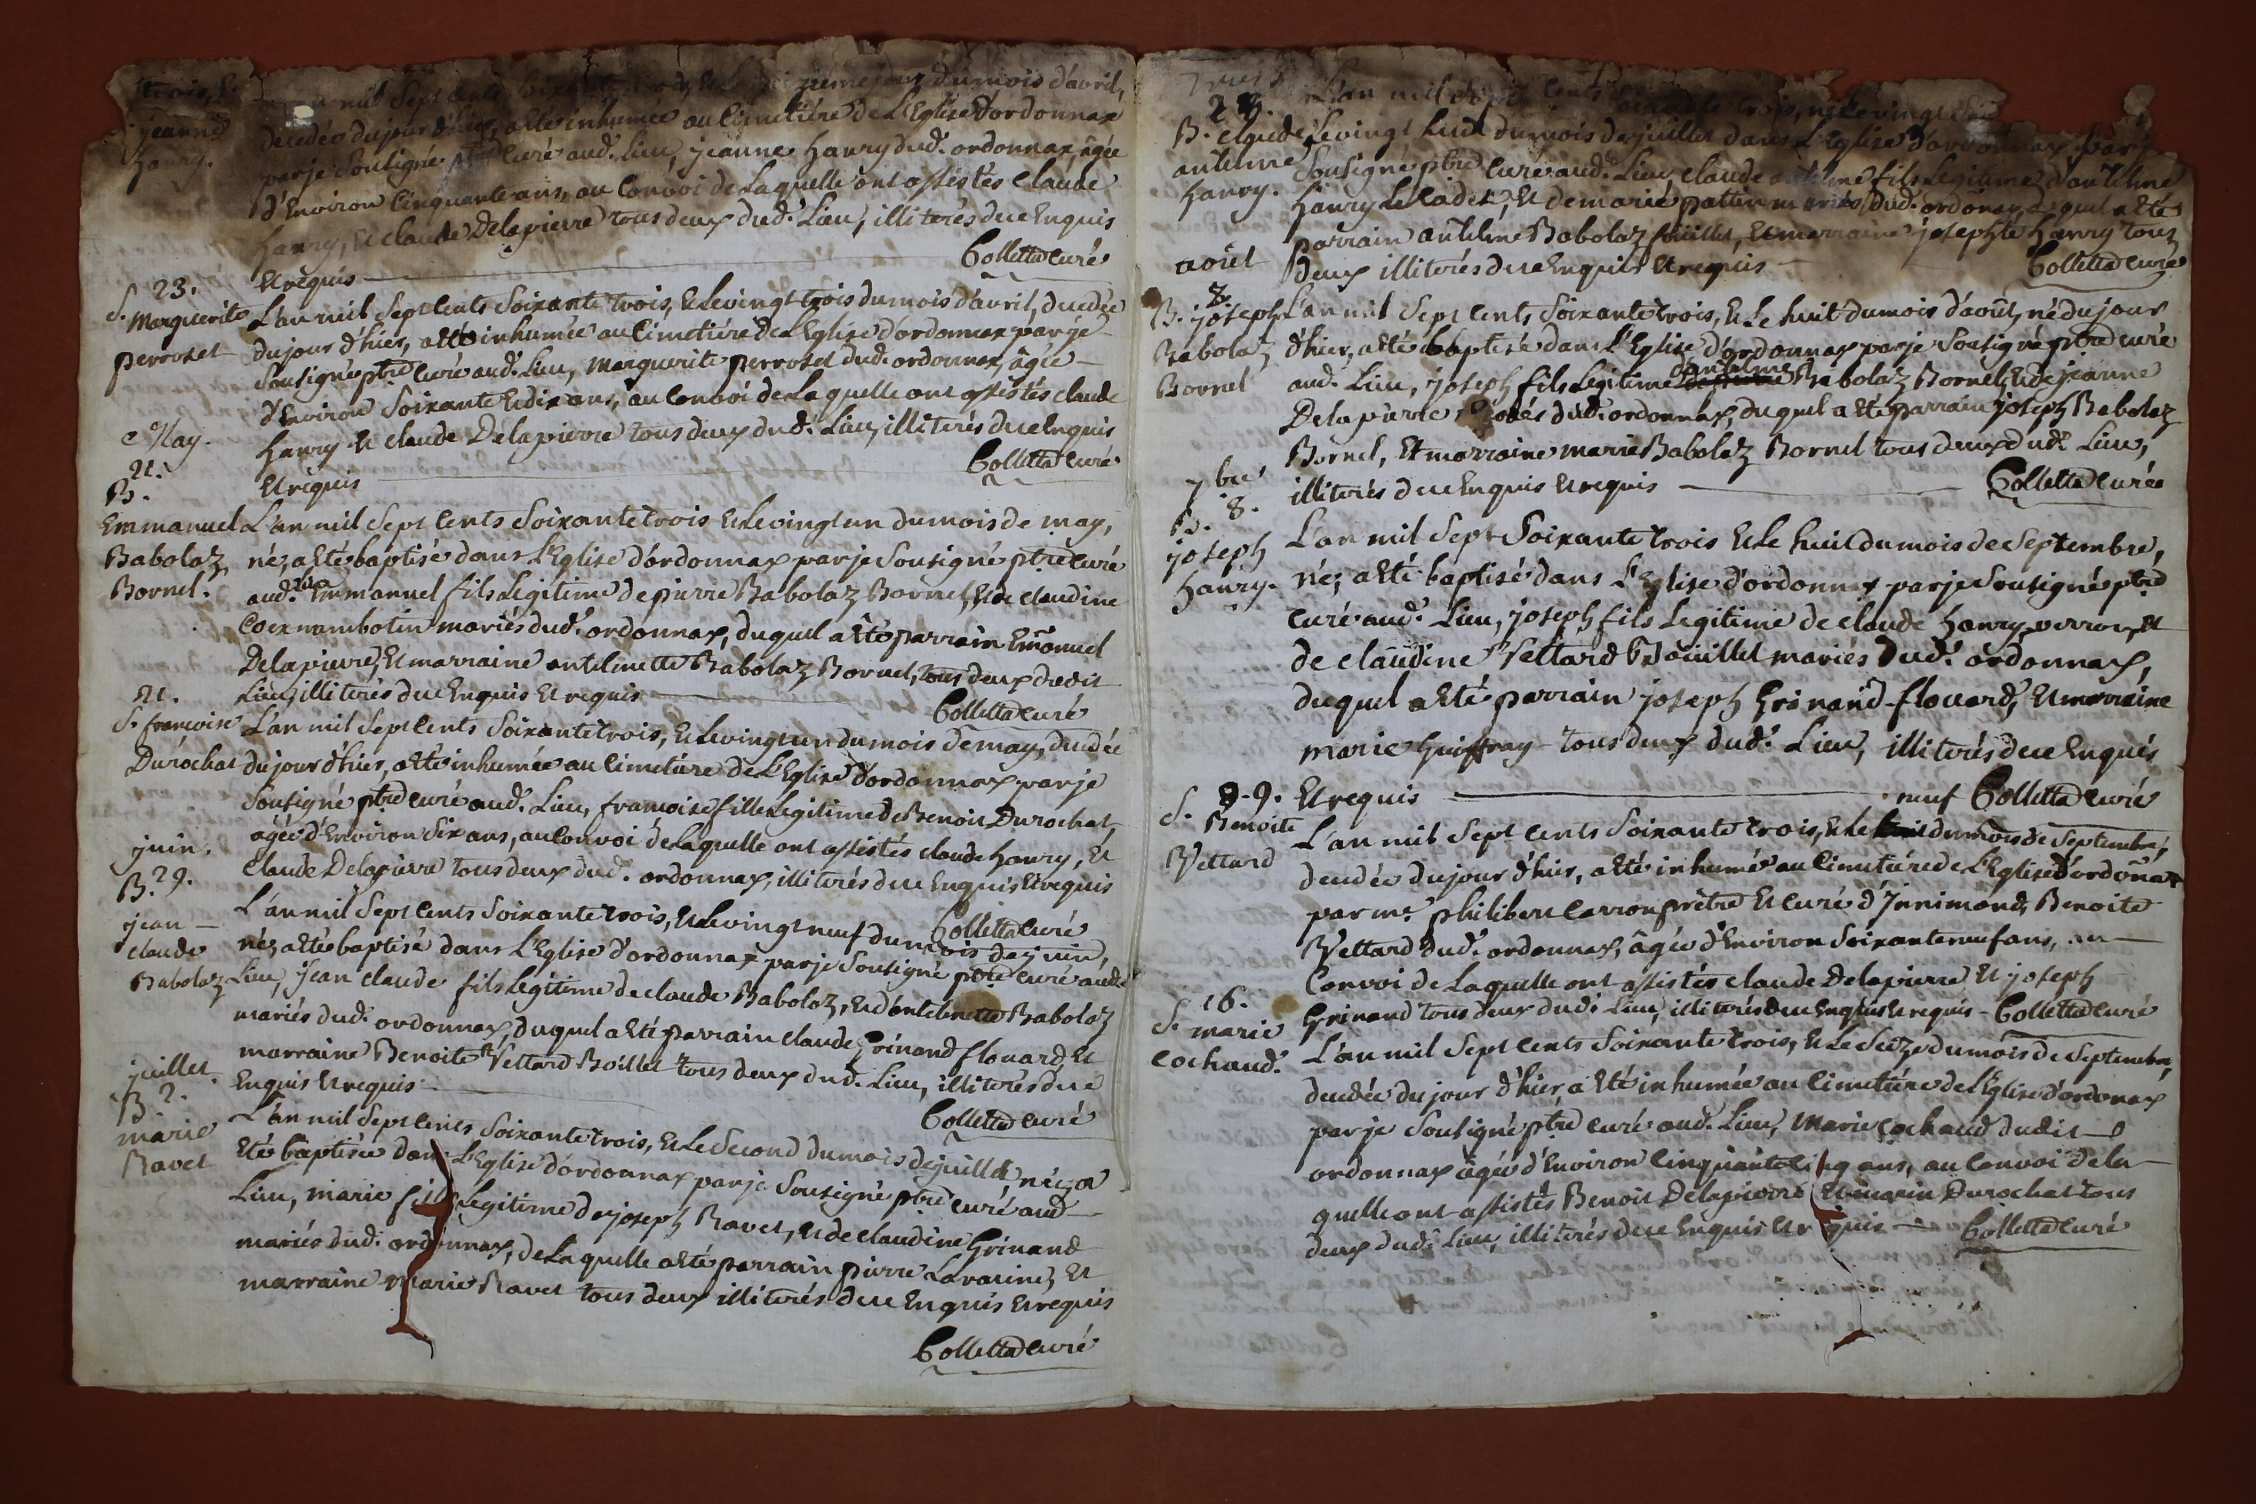 trois,
mil Sept cents Soixante trois, jour du mois d'avril,
S. jeanne
hanry.
decedée du jour d'hier, a eté inhumée au Cimetiére de L'Eglise d'ordonnax
par je Sousigné ptre curé aud. Lieu, jeanne hanry dud. ordonnax, âgée
d'Environ Cinquante ans, au Convoi de Laquelle ont assistés claude
hanry, Et claude Delapierre tous deux dud. Lieu, illiterés de ce Enquis
Et requis Colletta curé
23.
S. Marguerite
perroset
L'an mil Sept Cents Soixante trois, Et Le vingt trois du mois d'avril, decedée
du jour d'hier, a eté inhumée au Cimetiére de L'Eglise d'ordonnax par je
Sousigné ptre curé aud. Lieu, Marguerite perroset dud. ordonnax, âgée
d'Environ Soixante Et dix ans, au Convoi de Laquelle ont assistés claude
hanry Et claude Delapierre tous deux dud. Lieu, illiterés de ce Enquis
Et requis Colletta curé
May.
21.
B.
Emmanuel
Babolaz
Bornel.
L'an mil Sept Cents Soixante trois Et Le vingt un du mois de may,
né, a eté baptisé dans L'Eglise d'ordonnax par je Sousigné ptre curé
aud. Lieu Emmanuel fils Legitime de pierre Babolaz Bornel, Et de claudine
Cocxnambotin mariés dud. ordonnax, duquel a eté parrain Emanuel
Delapierre, Et marraine antelmette Babolaz Bornel, tous deux dudit
Lieu, illiterés de ce Enquis Et requis Colletta curé
21.
S. francoise
Durochat
L'an mil Sept Cents Soixante trois, Et Le vingt un du mois de may, decedée
du jour d'hier, a eté inhumée au Cimetiére de L'Eglise d'ordonnax par je
Sousigné ptre curé aud. Lieu, francoise fille Legitime de Benoit Durochat
âgée d'Environ Six ans, au Convoi de Laquelle ont assistés claude hanry, Et
Claude Delapierre tous deux dud. ordonnax, illiterés de ce Enquis Et requis
Colletta curé
juin.
B. 29.
jean
claude
Babolaz
L'an mil Sept Cents Soixante trois, Et Le vingt neuf du mois de juin,
né, a eté baptisé dans L'Eglise d'ordonnax par je Sousigné ptre curé aud.
Lieu, jean claude fils Legitime de claude Babolaz, Et d'antelmette Babolaz
mariés dud. ordonnax, duquel a eté parrain claude Grinand flouard, Et
marraine Benoite Vettard Boillet tous deux dud. Lieu, illiterés de ce
Enquis Et requis Colletta curé
juillet.
B. 2.
marie
Ravet
L'an mil Sept Cents Soixante trois, Et Le Second du mois de juillet née, a
Eté baptisée dans L'Eglise d'ordonnax par je Sousigné ptre curé aud.
Lieu, marie fille Legitime de joseph Ravet, Et de claudine Grinand
mariés dud. ordonnax, de Laquelle a eté parrain pierre Lavarine, Et
marraine Marie Ravet tous deux illiterés de ce Enquis Et requis
Colletta curé
28.
B. claude
antelme
hanry.
L'an mil Sept Cents Soixante trois, Et Le vingt
Le vingt huit du mois de juillet dans L'Eglise d'ordonnax par je
Sousigné ptre curé aud. Lieu, claude antelme fils Legitime d'antelme
hanry Le Cadet, Et de marie pattin mariés dud. ordonnax, duquel a eté
parrain antelme Babolaz foüillet, Et marraine josephte hanry tous
deux illiterés de ce Enquis Et requis Colletta curé
août
8.
B. joseph
Babolaz
Bornel
L'an mil Sept Cents Soixante trois, Et Le huit du mois d'août, né du jour
d'hier, a eté baptisé dans L'Eglise d'ordonnax par je Sousigné ptre curé
aud. Lieu, joseph fils Legitime d'antelme Babolaz Bornel, Et de jeanne
Delapierre mariés dud. ordonnax, duquel a eté parrain joseph Babolaz
Bornel, Et marraine marie Babolaz Bornel tous deux dud. Lieu,
illiterés de ce Enquis Et requis Colletta curé
7bre
B. 8.
joseph
hanry.
L'an mil Sept Soixante trois Et Le huit du mois de Septembre,
né, a eté baptisé dans L'Eglise d'ordonnax par je Sousigné ptre
curé aud. Lieu, joseph fils Legitime de claude hanry perron, Et
de claudine Vettard Boüillet mariés dud. ordonnax,
duquel a eté parrain joseph Grinand flouard, Et marraine
marie Guiffray tous deux dud. Lieu, illiterés de ce Enquis
Et requis Colletta curé
9.
S.
Benoite
Vettard
neuf
L'an mil Sept Cents Soixante trois, Et Le du mois de Septembre,
decedée du jour d'hier, a eté inhumé au Cimetiére de L'Eglise d'ordoñax
par mr. philibert Carron prêtre Et curé d'Innimond, Benoite
Vettard dud. ordonnax, âgée d'Environ Soixante neuf ans, au
Convoi de Laquelle ont assistés claude Delapierre Et joseph
Grinand tous deux dud. Lieu, illiterés de ce Enquis Et requis - Colletta curé
16.
S. marie
Cochaud.
L'an mil Sept Cents Soixante trois, Et Le Seize du mois de Septembre,
decedée du jour d'hier, a eté inhumée au Cimetiére de L'Eglise d'ordonax
par je Sousigné ptre curé aud. Lieu, Marie Cochaud dudit
ordonnax âgée d'Environ Cinquante Cinq ans, au Convoi de la
quelle ont assistés Benoit Delapierre Et marin Durochat tous
deux dud. Lieu, illiterés de ce Enquis Et requis Colletta curé